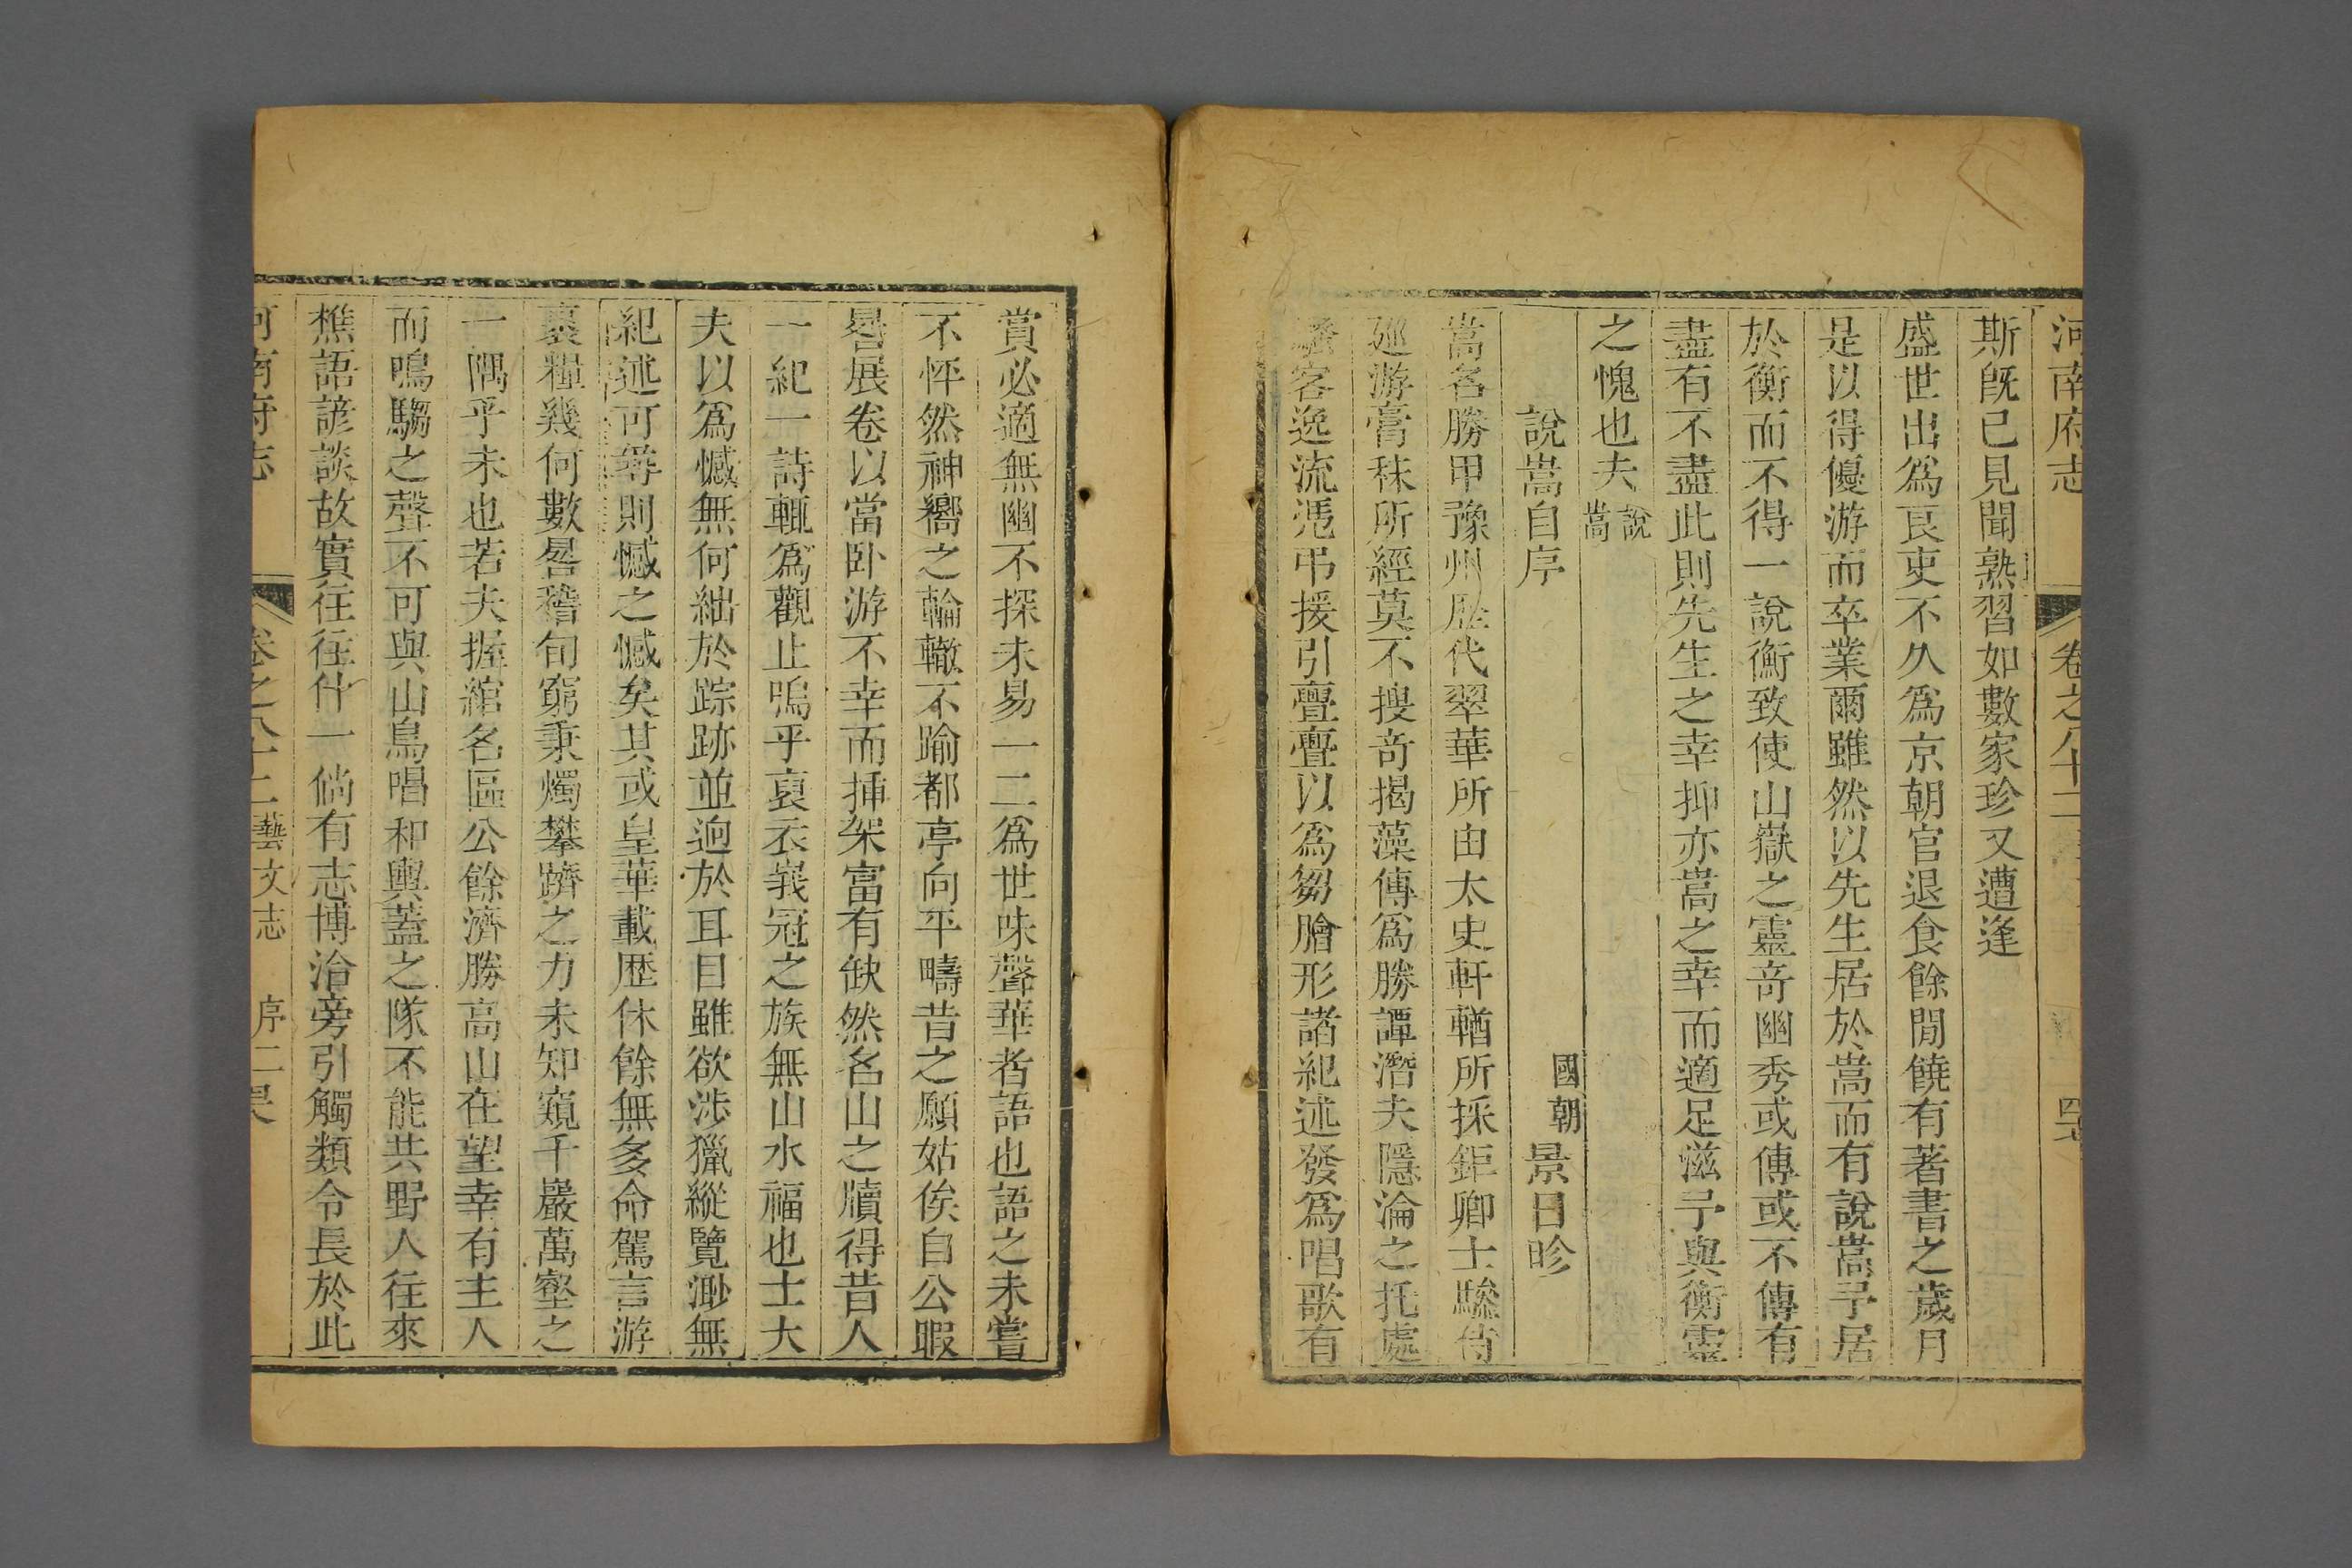 河南府志 卷之八十二
斯旣已見聞熟習如數家珍又遭逢
盛世出爲良吏不久爲京朝官退食餘閒饒有著書之歲月
是以得優游而卒業爾雖然以先生居於嵩而有說嵩予居
於衡而不得一說衡致使山嶽之靈竒幽秀或傳或不傳有
盡有不盡此則先生之幸抑亦嵩之幸而適足滋予與衡靈
之愧也夫 說嵩
說嵩自序
國朝 景日昣
嵩名勝甲豫州歷代翠華所由太史軒輶所採鉅卿士驂侍
廵游膏秣所經莫不搜竒揭藻傳爲勝譚潛夫隱淪之托處
騷客逸流凴弔援引亹亹以爲芻膾形諸紀述發爲唱歌有
賞必適無幽不探未易一二爲世味聲華者語也語之未嘗
不怦然神嚮之輪轍不踰都亭向平疇昔之願姑俟自公暇
晷展卷以當卧游不幸而揷架富有缺然名山之牘得昔人
一紀一詩輒爲觀止嗚乎裒衣峩冠之族無山水福也士大
夫以爲憾無何絀於踪跡並逈於耳目雖欲涉獵縱覽渺無
紀述可尋則憾之憾矣其或皇華載歴休餘無多命駕言游
裹糧幾何數晷稽旬窮秉燭攀躋之力未知窺千巖萬壑之
一隅乎未也若夫握綰名區公餘濟勝高山在望幸有主人
而鳴騶之聲不可與山鳥唱和輿蓋之隊不能共野人往來
樵語諺談故實往往什一倘有志博洽旁引觸類令長於此
河南府志 卷之八十二 藝文志 序二